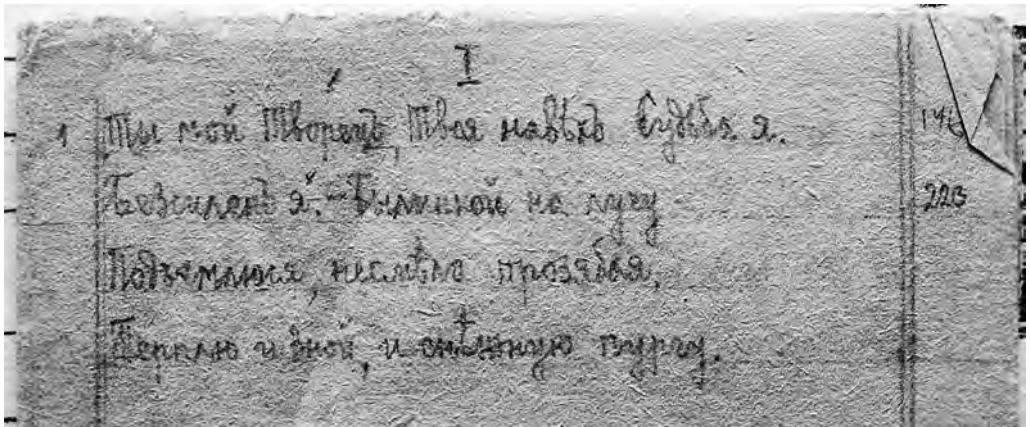 I
1 Ты мой Творецъ, Твоя навѣкъ Судьба я. 146
Безсиленъ я. Былинкой на лугу 223
Подъемлюся, несмѣло прозябая,
Терплю и зной, и снѣжную пургу.